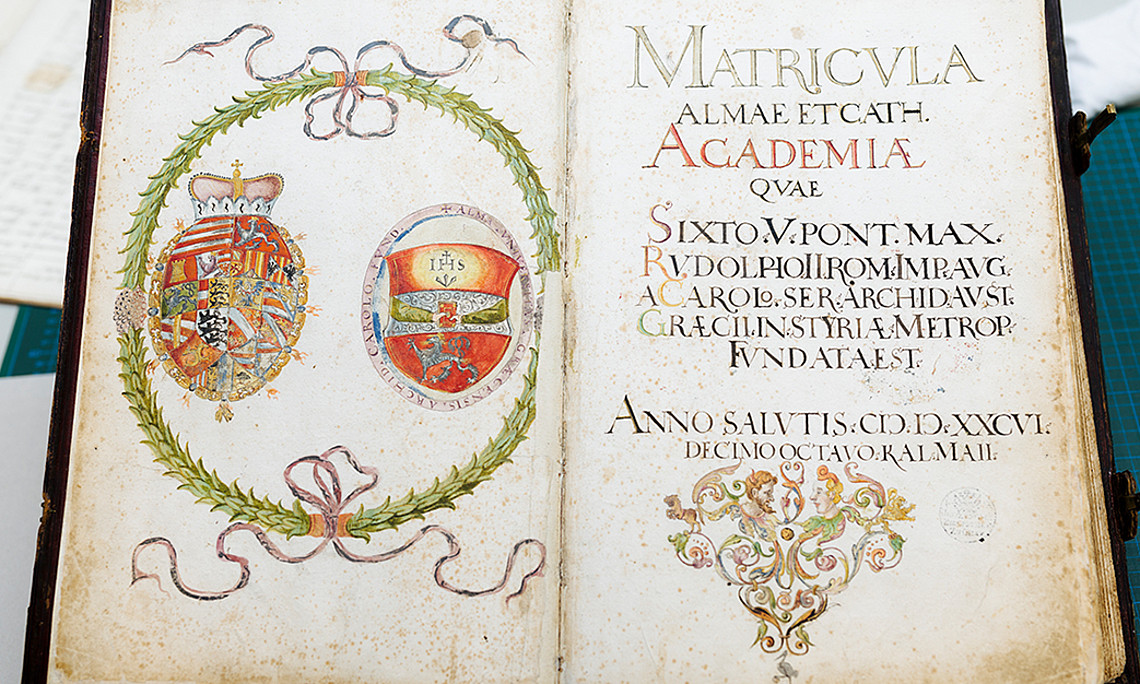 IHS
✠ ALMA VNIVERS. GRAECENSIS ARCHID. CAROLO. FVND.
MATRICVLA
ALMAE ET CATH.
ACADEMIÆ
QVAE
SIXTO. V. PONT. MAX.
RVDOLPHO II. ROM. IMP. AVG.
A CAROLO. SER. ARCHID. AVST.
GRÆCII. IN STYRIÆ METROP.
FVNDATA EST.
ANNO SALVTIS. CIↃ. IↃ. XXCVI.
DECIMO OCTAVO. KAL. MAII.